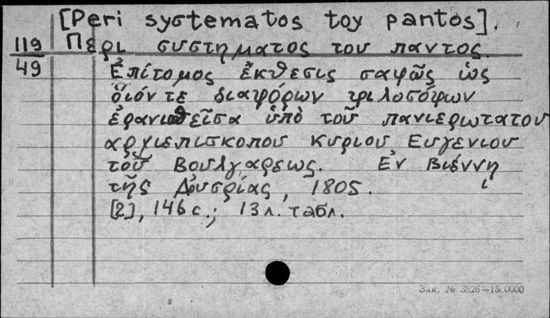 [Peri systematos toy pantos].
119 Περι συστηματος του παντος.
49 Ἐπίτομος ἔκθεσις σαφῶς ὡς
οἷόν τε διαφόρων φιλοσόφων
ἐρανισθεῖσα ὑπὸ τοῦ πανιερωτατου
αρχιεπισκοπου Κυριου Ευγενιου
τοῦ Βουλγαρεως. Ἐν Βιέννῃ
τῆς Ἀυσρίας, 1805.
[2], 146 с.; 13 л. табл.
Зак. № 3826—15.0000